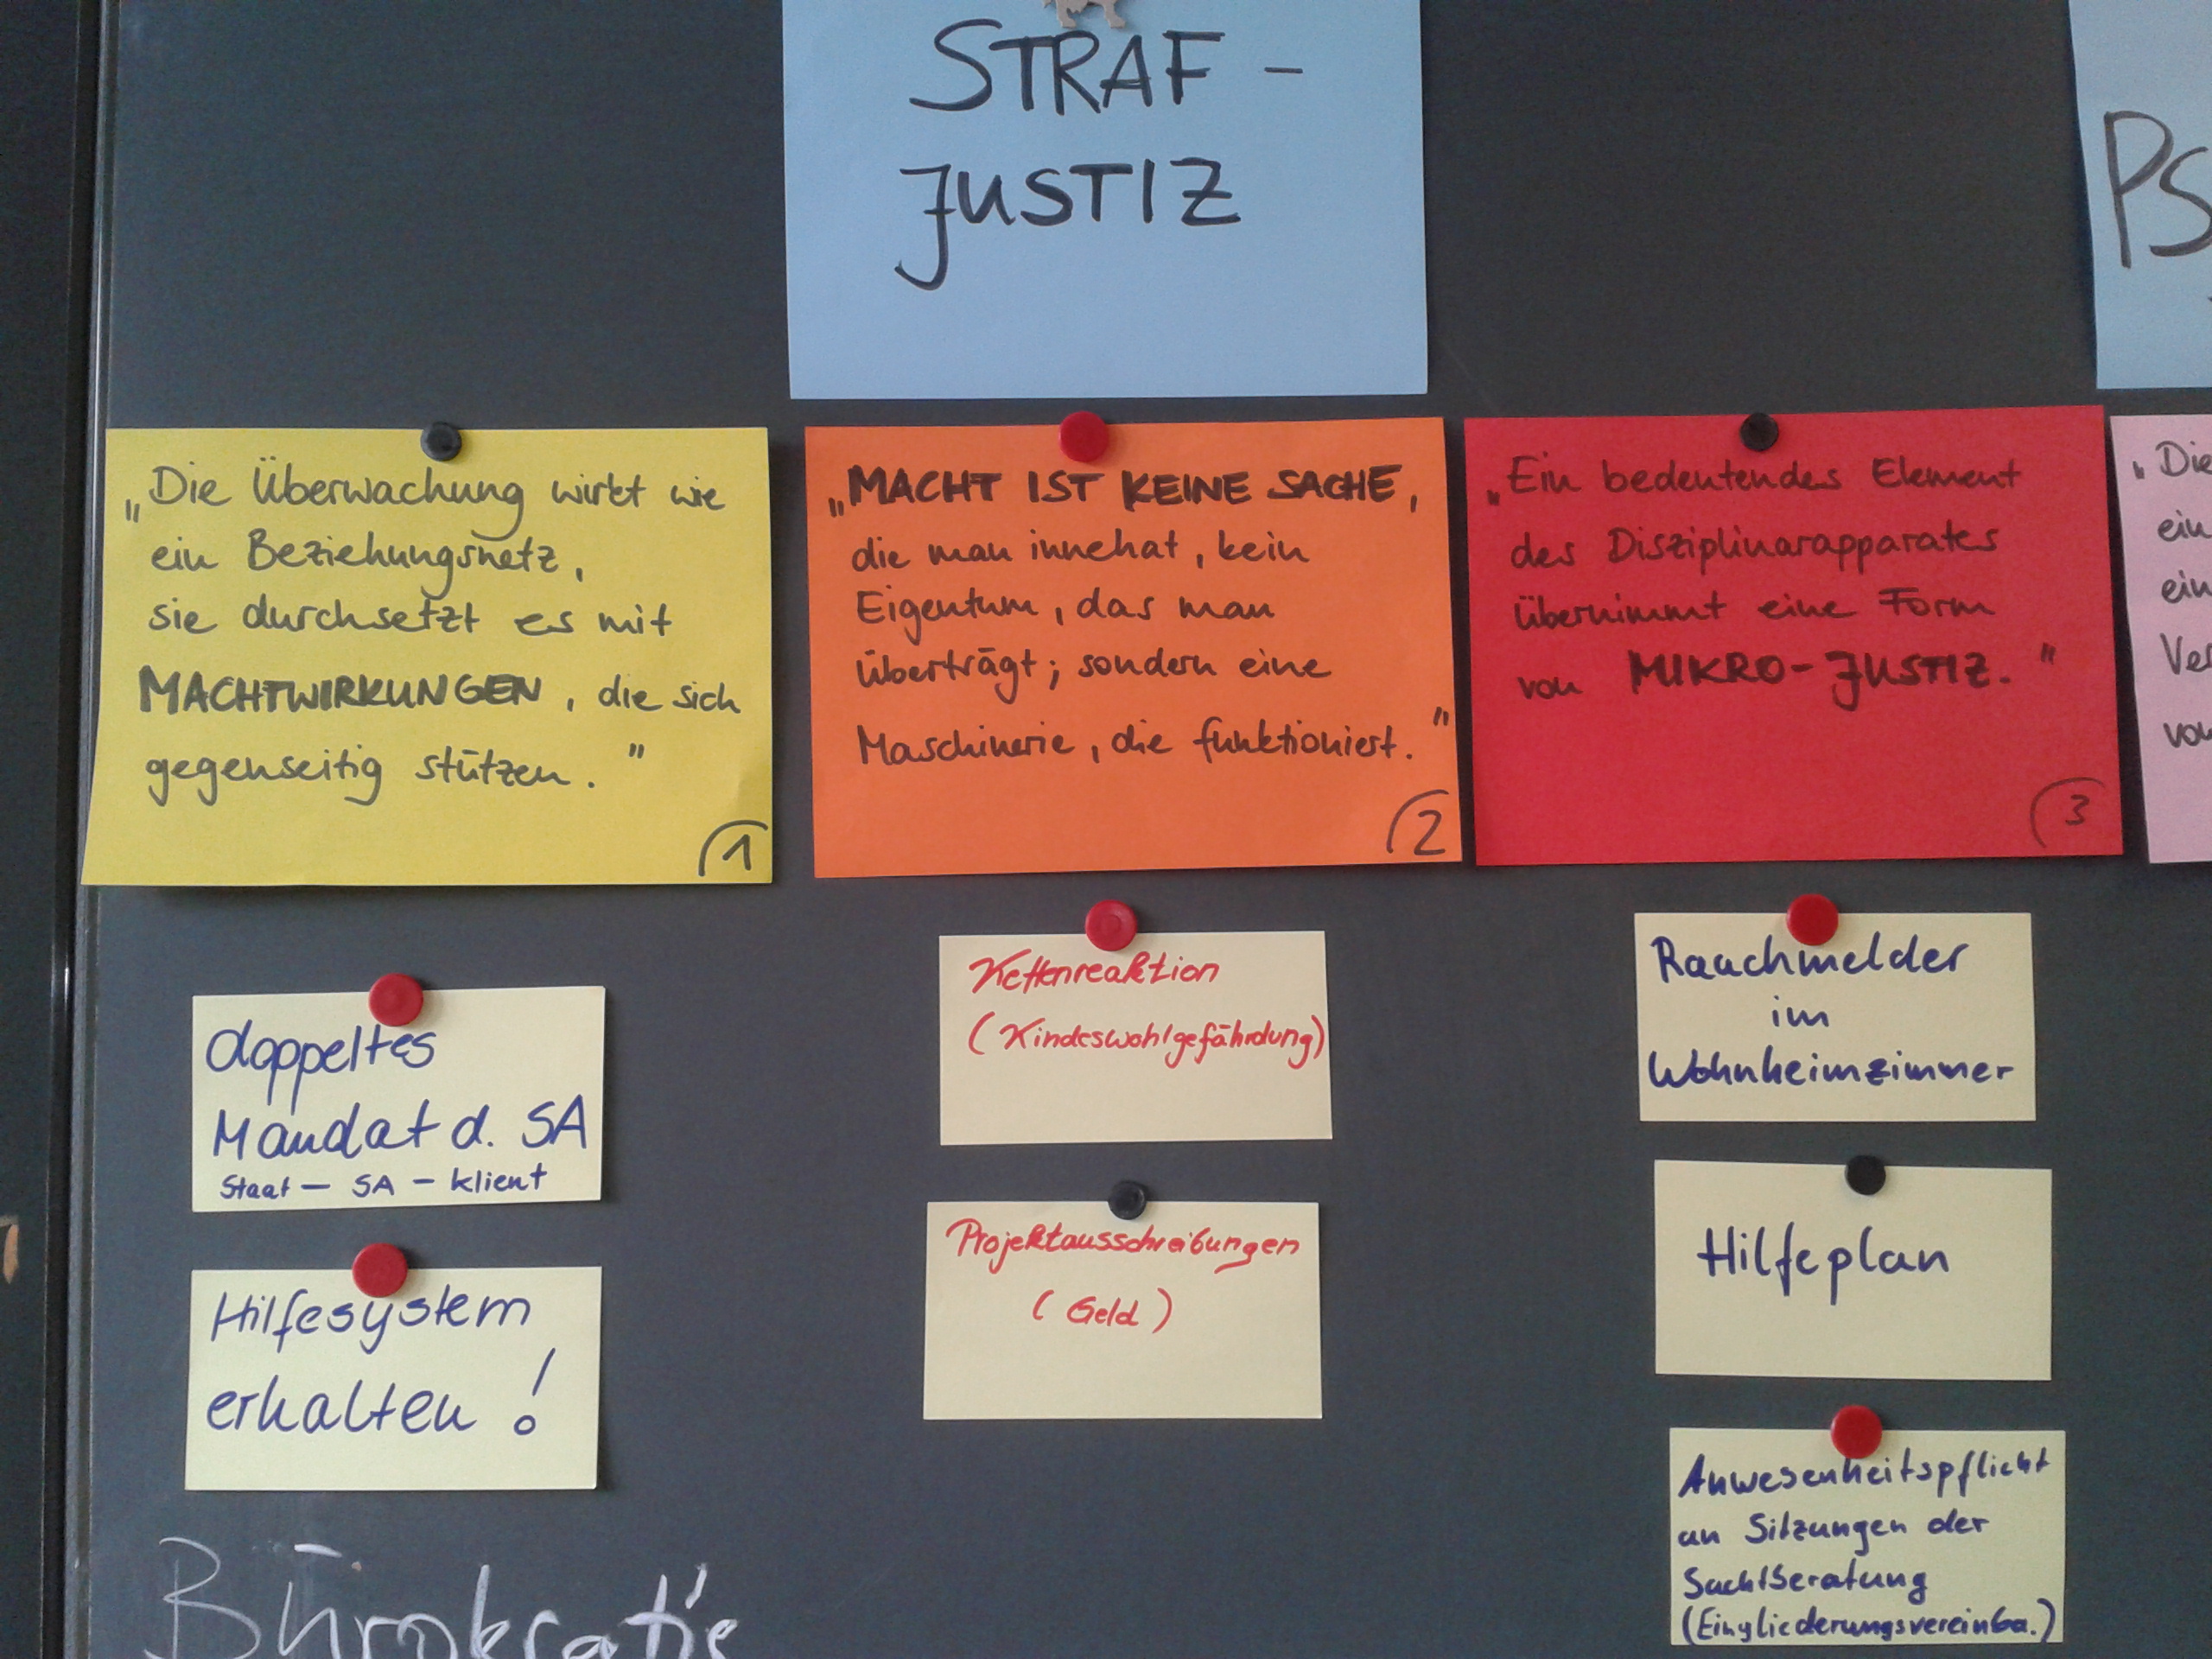 STRAF-
JUSTIZ
PS
„Die Überwachung wirkt wie
ein Beziehungsnetz,
sie durchsetzt es mit
MACHTWIRKUNGEN, die sich
gegenseitig stützen."
1
„MACHT IST KEINE SACHE,
die man innehat, kein
Eigentum, das man
überträgt; sondern eine
Maschinerie, die funktioniert."
2
„Ein bedeutendes Element
des Disziplinarapparates
übernimmt eine Form
von MIKRO-JUSTIZ."
3
„Die
ein
ein
Ver
von
doppeltes
Mandat d. SA
Staat – SA – klient
Hilfesystem
erhalten!
Bürokratie
Kettenreaktion
(Kindeswohlgefährdung)
Projektausschreibungen
(Geld)
Rauchmelder
im
Wohnheimzimmer
Hilfeplan
Anwesenheitspflicht
an Sitzungen der
Suchtberatung
(Eingliederungsvereinba.)